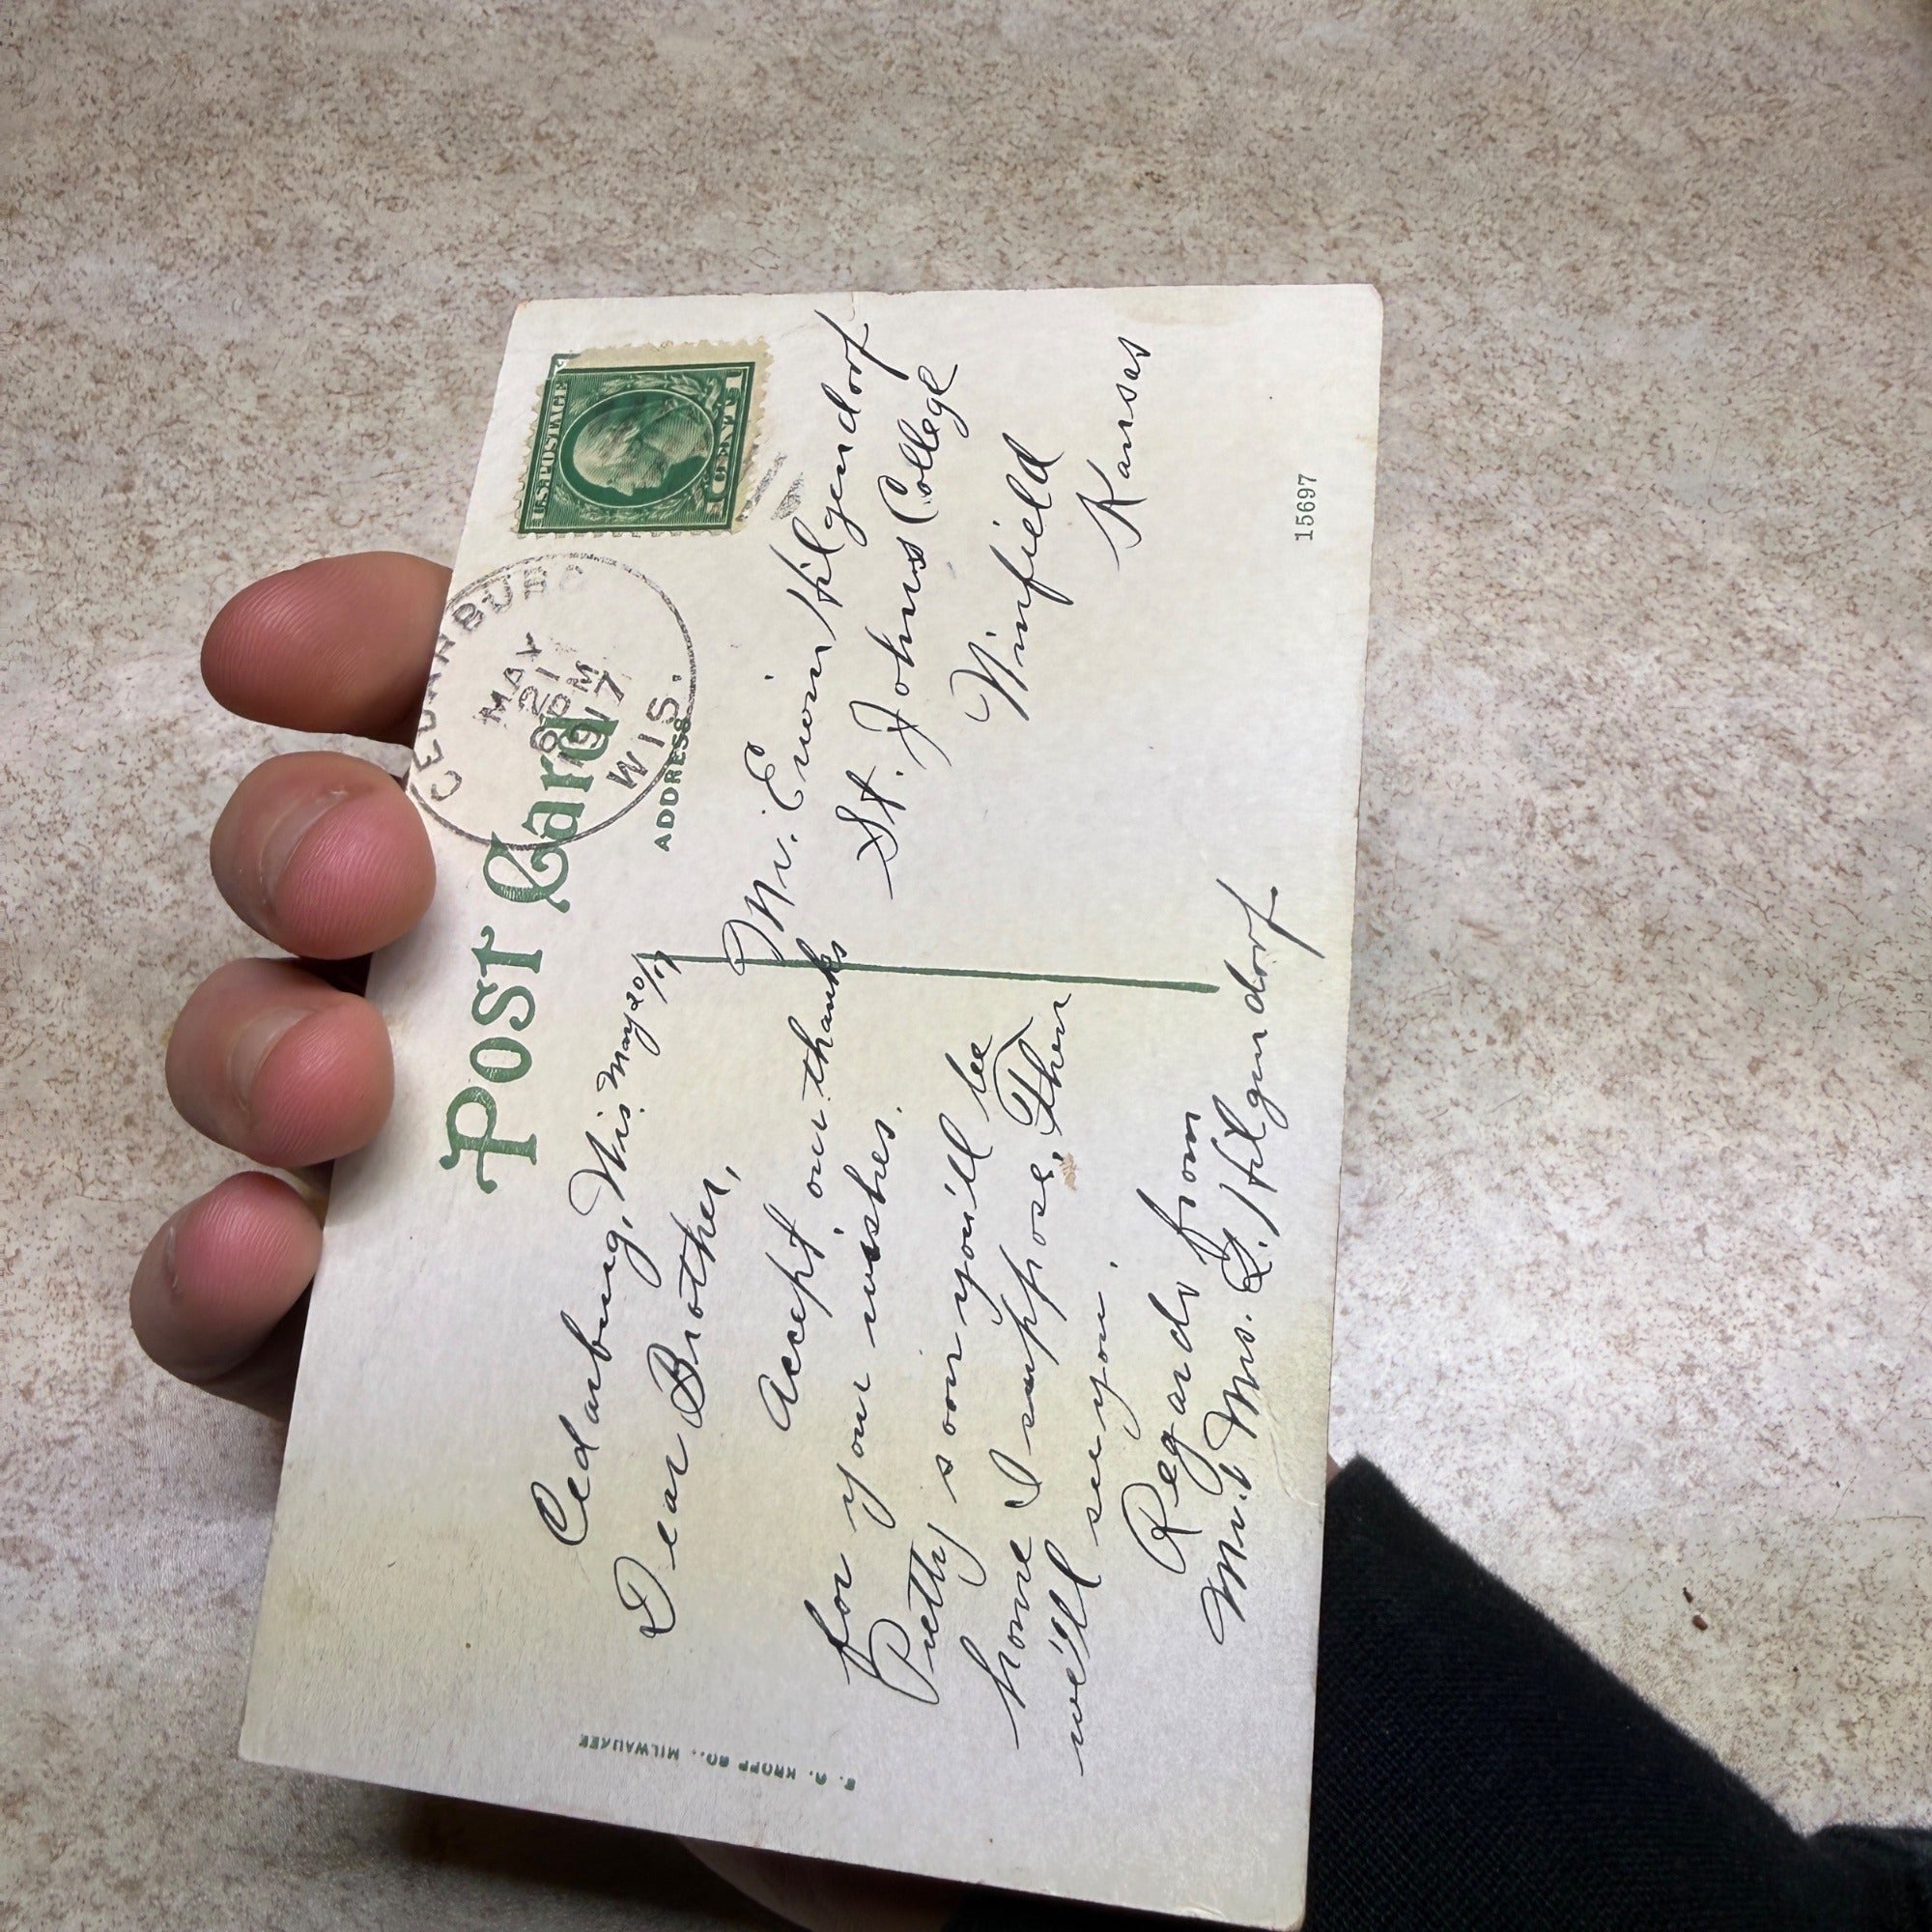 Post Card
CEDARBURG
MAY
21
8 PM
1917
WIS.
U.S. POSTAGE
1 CENT 1
ADDRESS
Cedarburg, Wis. May 20/17
Dear Brother,
Accept our thanks
for your wishes.
Pretty soon you'll be
home I suppose. Then
we'll see you.
Regards from
Mr. & Mrs. Q. Hilgendorf.
Mr. Erwin Hilgendorf
St. Johns College
Winfield
Kansas
E. C. KROPP CO., MILWAUKEE
15697